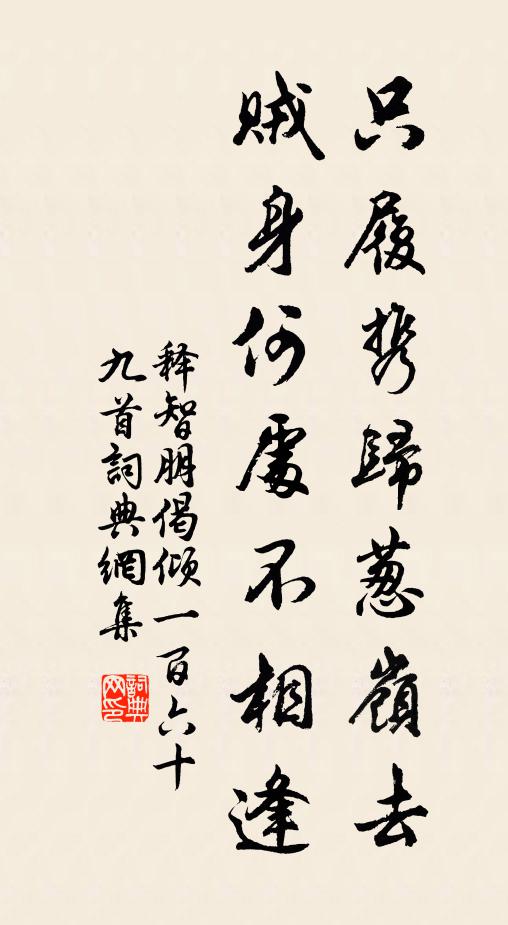 只履携歸葱嶺去
賊身何處不相逢
释智朋偈倾一百六十
九首詞典網集
詞典
网印